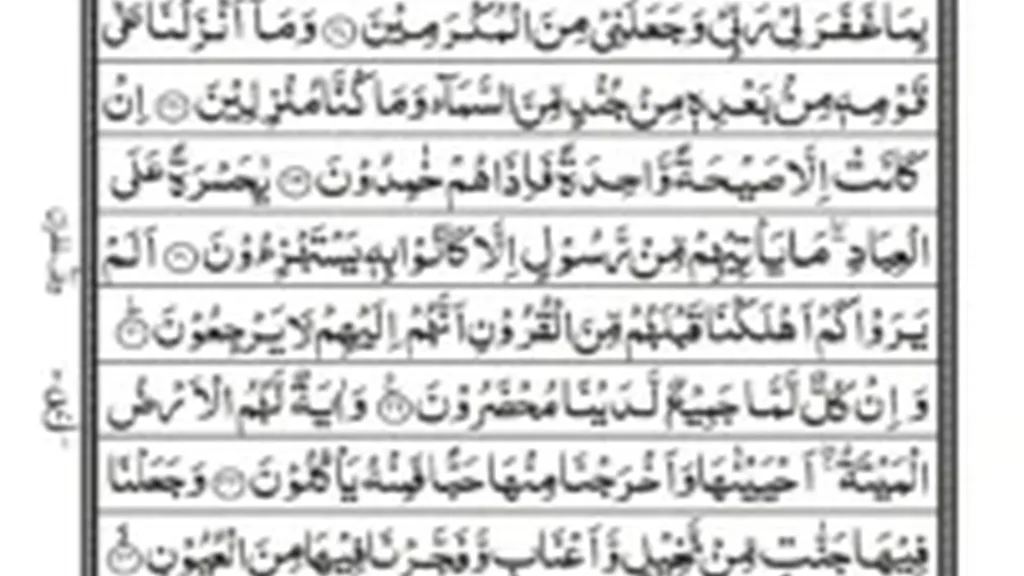 بِمَا غَفَرَ لِیْ رَبِّیْ وَ جَعَلَنِیْ مِنَ الْمُكْرَمِیْنَ ۝ وَ مَاۤ اَنْزَلْنَا عَلٰی
قَوْمِهٖ مِنْۢ بَعْدِهٖ مِنْ جُنْدٍ مِّنَ السَّمَآءِ وَ مَا كُنَّا مُنْزِلِیْنَ ۝ اِنْ
كَانَتْ اِلَّا صَیْحَةً وَّاحِدَةً فَاِذَا هُمْ خٰمِدُوْنَ ۝ یٰحَسْرَةً عَلَی
الْعِبَادِ ۚ مَا یَاْتِیْهِمْ مِّنْ رَّسُوْلٍ اِلَّا كَانُوْا بِهٖ یَسْتَهْزِءُوْنَ ۝ اَلَمْ
یَرَوْا كَمْ اَهْلَكْنَا قَبْلَهُمْ مِّنَ الْقُرُوْنِ اَنَّهُمْ اِلَیْهِمْ لَا یَرْجِعُوْنَ ۝
وَ اِنْ كُلٌّ لَّمَّا جَمِیْعٌ لَّدَیْنَا مُحْضَرُوْنَ ۝ وَ اٰیَةٌ لَّهُمُ الْاَرْضُ
الْمَیْتَةُ ۚ اَحْیَیْنٰهَا وَ اَخْرَجْنَا مِنْهَا حَبًّا فَمِنْهُ یَاْكُلُوْنَ ۝ وَ جَعَلْنَا
فِیْهَا جَنّٰتٍ مِّنْ نَّخِیْلٍ وَّ اَعْنَابٍ وَّ فَجَّرْنَا فِیْهَا مِنَ الْعُیُوْنِ ۝